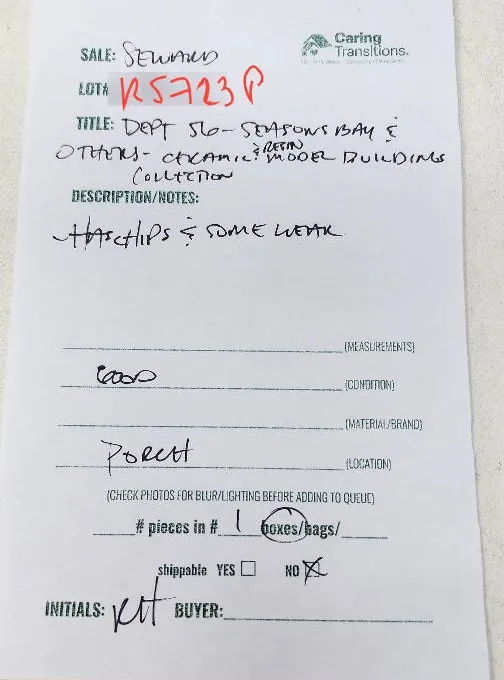 Caring
Transitions.
SALE: SEWARD
LOT# RS723P
TITLE: DEPT 56- SEASONS BAY &
OTHERS- CERAMIC & RESIN MODEL BUILDINGS
COLLECTION
DESCRIPTION/NOTES:
HAS CHIPS & SOME WEAR
(MEASUREMENTS)
GOOD (CONDITION)
(MATERIAL/BRAND)
PORCH (LOCATION)
(CHECK PHOTOS FOR BLUR/LIGHTING BEFORE ADDING TO QUEUE)
# pieces in # 1 boxes/bags/
shippable YES NO
INITIALS: KH BUYER: